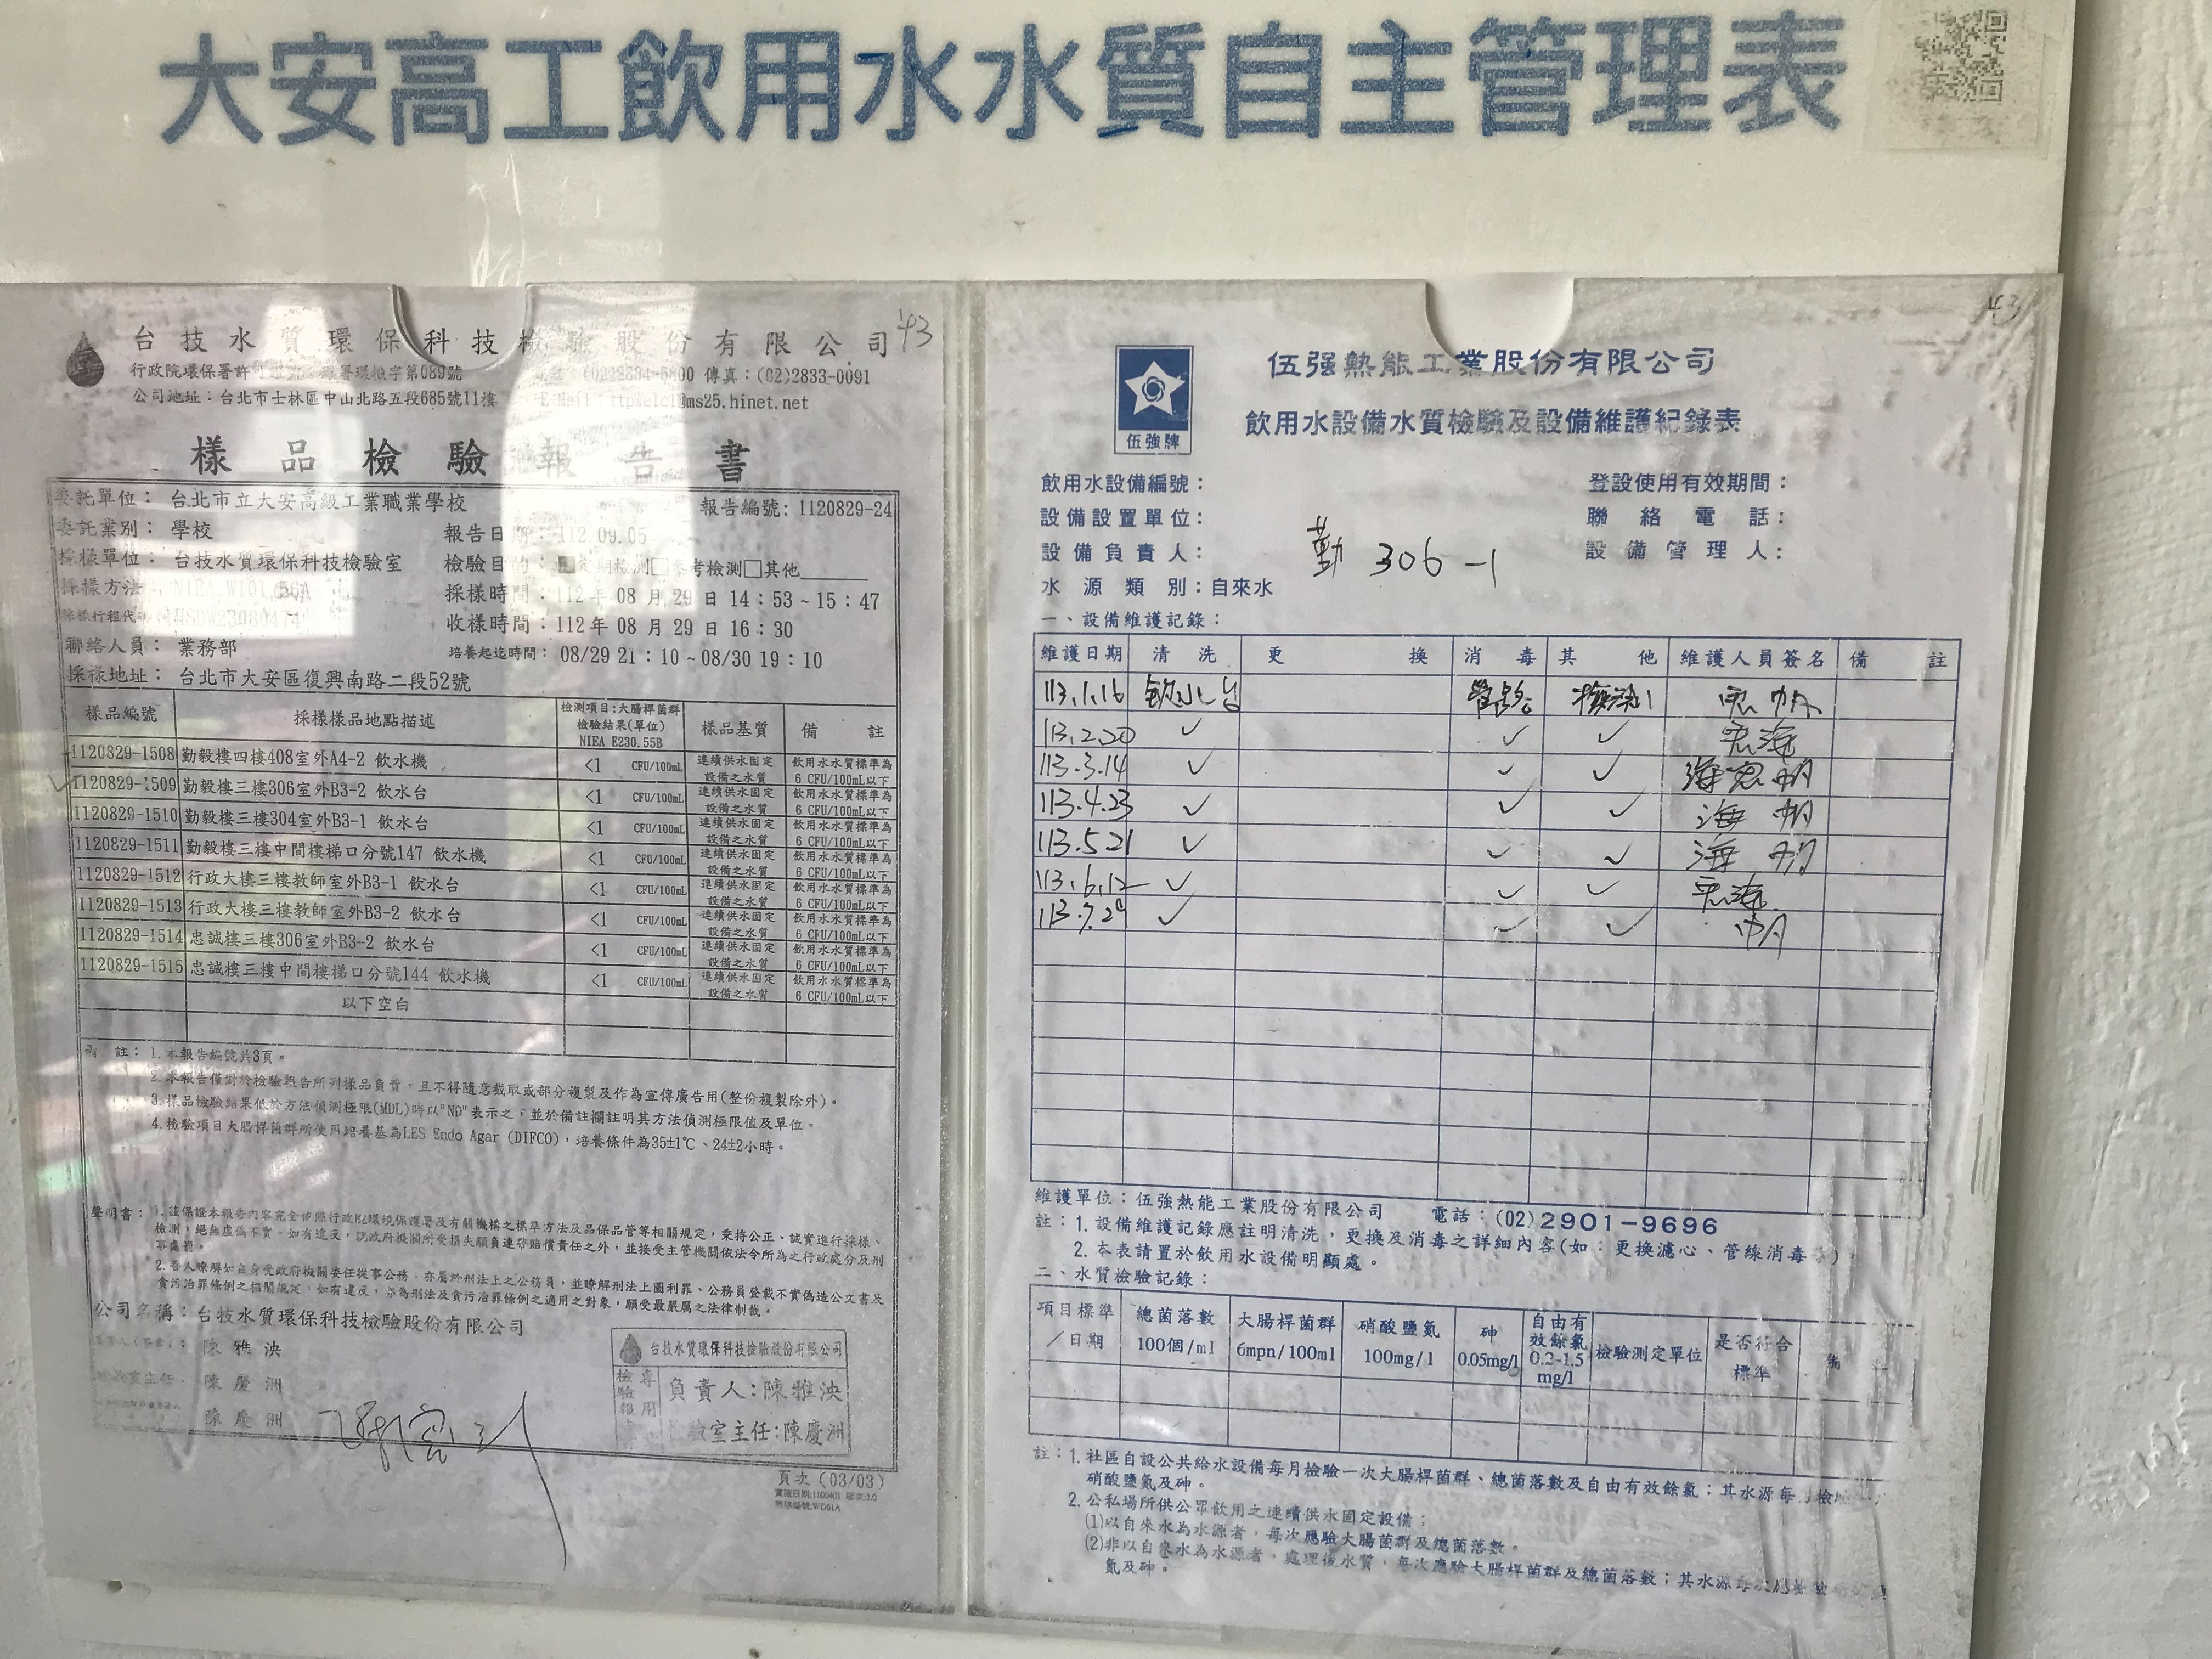 大安高工飲用水水質自主管理表
台技水質環保科技檢驗股份有限公司
43
行政院環保署許可 環檢字第089號
傳真:(02)2833-0091
公司地址:台北市士林區中山北路五段685號11樓
@ms25.hinet.net
樣品檢驗報告書
委託單位: 台北市立大安高級工業職業學校
報告編號: 1120829-24
委託業別: 學校
報告日期: 112.09.05
採樣單位: 台技水質環保科技檢驗室
檢驗目的:■定期檢測□參考檢測□其他
採樣方法: NIEA W101.56A
採樣時間:112年 08 月 29 日 14:53~15:47
採樣行程代
收樣時間:112年 08 月 29 日 16:30
聯絡人員: 業務部
培養起迄時間: 08/29 21:10~08/30 19:10
採樣地址: 台北市大安區復興南路二段52號
樣品編號 採樣樣品地點描述 檢測項目:大腸桿菌群 檢驗結果(單位) NIEA E230.55B 樣品基質 備 註
1120829-1508 勤毅樓四樓408室外A4-2 飲水機 <1 CFU/100mL 連續供水固定設備之水質 飲用水水質標準為6 CFU/100mL以下
1120829-1509 勤毅樓三樓306室外B3-2 飲水台 <1 CFU/100mL 連續供水固定設備之水質 飲用水水質標準為6 CFU/100mL以下
1120829-1510 勤毅樓三樓304室外B3-1 飲水台 <1 CFU/100mL 連續供水固定設備之水質 飲用水水質標準為6 CFU/100mL以下
1120829-1511 勤毅樓三樓中間樓梯口分號147 飲水機 <1 CFU/100mL 連續供水固定設備之水質 飲用水水質標準為6 CFU/100mL以下
1120829-1512 行政大樓三樓教師室外B3-1 飲水台 <1 CFU/100mL 連續供水固定設備之水質 飲用水水質標準為6 CFU/100mL以下
1120829-1513 行政大樓三樓教師室外B3-2 飲水台 <1 CFU/100mL 連續供水固定設備之水質 飲用水水質標準為6 CFU/100mL以下
1120829-1514 忠誠樓三樓306室外B3-2 飲水台 <1 CFU/100mL 連續供水固定設備之水質 飲用水水質標準為6 CFU/100mL以下
1120829-1515 忠誠樓三樓中間樓梯口分號144 飲水機 <1 CFU/100mL 連續供水固定設備之水質 飲用水水質標準為6 CFU/100mL以下
以下空白
備 註: 1.本報告編號共3頁。
2.本報告僅對於檢驗報告所列樣品負責,且不得隨意截取或部分複製及作為宣傳廣告用(整份複製除外)。
3.樣品檢驗結果低於方法偵測極限(MDL)時以"ND"表示之,並於備註欄註明其方法偵測極限值及單位。
4.檢驗項目大腸桿菌群所使用培養基為LES Endo Agar (DIFCO),培養條件為35±1℃、24±2小時。
聲明書: 1.茲保證本報告內容完全依照行政院環境保護署及有關機構之標準方法及品保品管等相關規定,秉持公正、誠實進行採樣、
檢測,絕無虛偽不實,如有違反,就政府機關所受損失願負連帶賠償責任之外,並接受主管機關依法令所為之行政處分及刑
事處罰。
2.吾人瞭解如自身受政府機關委任從事公務,亦屬於刑法上之公務員,並瞭解刑法上圖利罪、公務員登載不實偽造公文書及
貪污治罪條例之相關規定,如有違反,亦為刑法及貪污治罪條例之適用之對象,願受最嚴厲之法律制裁。
公司名稱:台技水質環保科技檢驗股份有限公司
陳雅泱
陳慶洲
陳慶洲
台技水質環保科技檢驗股份有限公司
檢驗報告專用
負責人:陳雅泱
驗室主任:陳慶洲
頁次(03/03)
43
伍強牌
伍强熱能工業股份有限公司
飲用水設備水質檢驗及設備維護紀錄表
飲用水設備編號:
登設使用有效期間:
設備設置單位:
聯絡電話:
設備負責人:
勤 306-1
設備管理人:
水源類別:自來水
一、設備維護記錄:
維護日期 清 洗 更 換 消 毒 其 他 維護人員簽名 備 註
113.1.16 飲水台
113.2.20 ✓ ✓ ✓
113.3.14 ✓ ✓ ✓
113.4.23 ✓ ✓ ✓ 海 帆
113.5.21 ✓ ✓ ✓ 海 帆
113.6.12 ✓ ✓ ✓
113.7.29 ✓ ✓ ✓ 帆
維護單位:伍強熱能工業股份有限公司 電話:(02)2901-9696
註:1.設備維護記錄應註明清洗,更換及消毒之詳細內容(如:更換濾心、管線消毒等)
2.本表請置於飲用水設備明顯處。
二、水質檢驗記錄:
項目標準/日期 總菌落數100個/ml 大腸桿菌群6mpn/100ml 硝酸鹽氮100mg/l 砷0.05mg/l 自由有效餘氯0.2-1.5mg/l 檢驗測定單位 是否符合標準 備
註:1.社區自設公共給水設備每月檢驗一次大腸桿菌群、總菌落數及自由有效餘氯;其水源每
硝酸鹽氮及砷。
2.公私場所供公眾飲用之連續供水固定設備:
(1)以自來水為水源者,每次應驗大腸菌群及總菌落數。
(2)非以自來水為水源者,處理後水質,每次應驗大腸桿菌群及總菌落數;其水源
氮及砷。